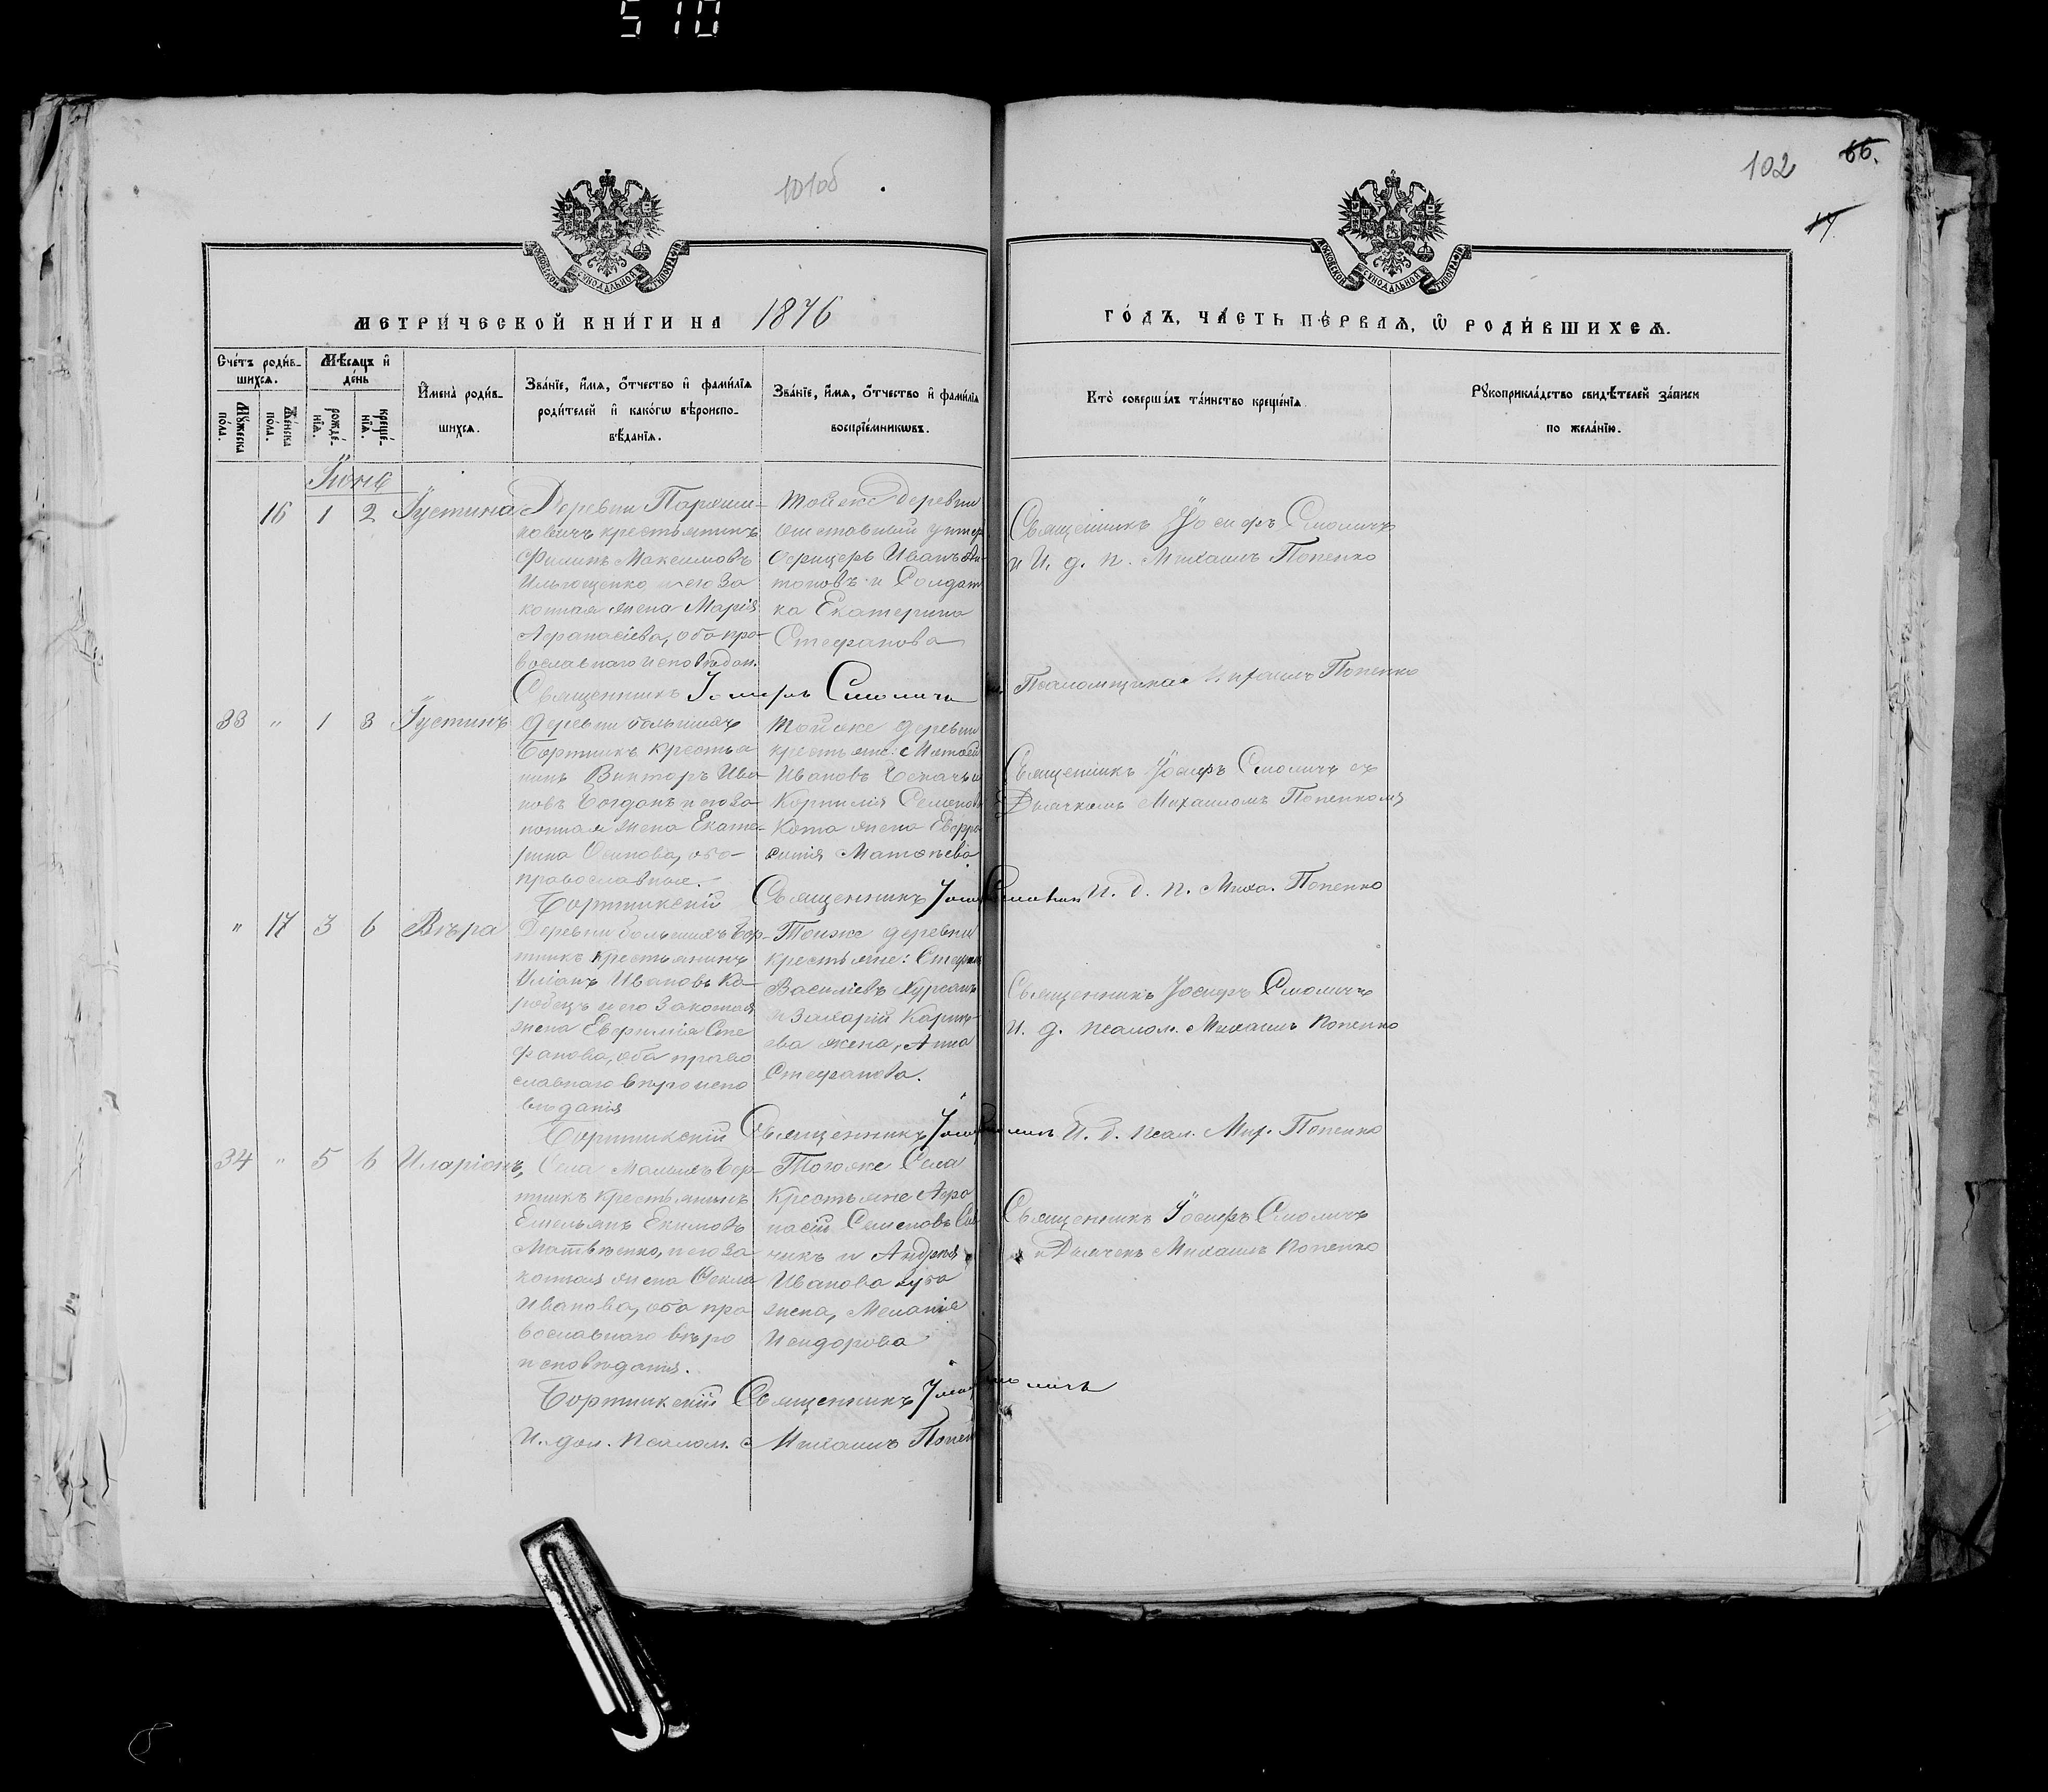 510
101об
102
66.
17.
МЕТРИ́ЧЕСКОЙ КНИ́ГИ НА 1876
ГО́ДЪ, ЧА́СТЬ ПЕ́РВАЯ, Ѿ РОДИ́ВШИХСЯ.
Сче́тъ роди́в-
шихся.
Мѣ́сяцъ и҆
де́нь
Мꙋжеска
по́ла.
Же́нска
по́ла.
рожде́-
нїя.
креще́-
нїя.
И҆мена̀ роди́в-
шихся.
Зва́нїе, и҆́мя, ѻ҆́тчество и҆ фами́лїя
роди́телей и҆ како́гѡ вѣроиспо-
вѣ́данїя.
Зва́нїе, и҆́мя, ѻ҆́тчество и҆ фами́лїя
воспрїе́мникѡвъ.
Кто̀ соверша́лъ та́инство креще́нїя.
Рꙋкоприкла́дство свидѣ́телей за́писи
по жела́нїю.
Іюнь
16 1 2 Іустина
Деревни
ковичъ крестьянинъ
Филипъ Максимовъ
Ильющенко, и его за
конная жена Марія
Афанасіева, оба пра-
вославнаго исповѣдан.
Тойже деревни
отставный унтер
Офицеръ Иванъ Ан-
тоновъ и Солдат
ка Екатерина
Стефанова
Священникъ Іосифъ Смоличъ
и И. д. п. Михаилъ Попенко
Священникъ Іосифъ Смоличъ
Псаломщика Михаилъ Попенко
33 " 1 3 Іустинъ
Деревни большихъ
Бортникъ крестья
нинъ Викторъ Ива-
новъ Богданъ и его за-
конная жена Екате-
рина Осипова, оба
православные.
Тойже деревни
крестьяне: Матвей
Ивановъ
Корнилія Семенов
Кота жена Евфро
синія Матвѣева
Священникъ Іосифъ Смоличъ съ
Дьячкомъ Михаиломъ Попенкомъ
Бортникскій Священникъ Іосифъ Смоличъ И. д. п. Миха. Попенко
" 17 3 6 Вѣра
Деревни большихъ Бор-
тникъ крестьянинъ
Иліанъ Ивановъ Ка-
робецъ и его законная
жена Евфимія Сте
фанова, оба право
славнаго вѣроиспо
вѣданія
Тойже деревни
крестьяне: Стефан
Василіевъ Хурсанъ
и Захарій Карпѣ-
ева жена, Анна
Стефанова.
Священникъ Іосифъ Смоличъ
И. д. псалом. Михаилъ Попенко
Бортникскій Священникъ Іосифъ Смоличъ И. д. псал. Мих. Попенко
34 " 5 6 Иларіонъ,
Села Малыхъ Бор-
тникъ крестьянинъ
Емельянъ Екимовъ
Матвѣенко, и его за
конная жена Фекла
Иванова, оба пра
вославнаго вѣро
исповѣданія.
Тогоже Села
Крестьяне Афа
насій Семеновъ
чикъ и Андрея
Иванова
жена, Меланія
Исидорова
Священникъ Іосифъ Смоличъ
и Дьячекъ Михаилъ Попенко
Бортникскій Священникъ Іосифъ Смоличъ
И. дол. псалом. Михаилъ Попен